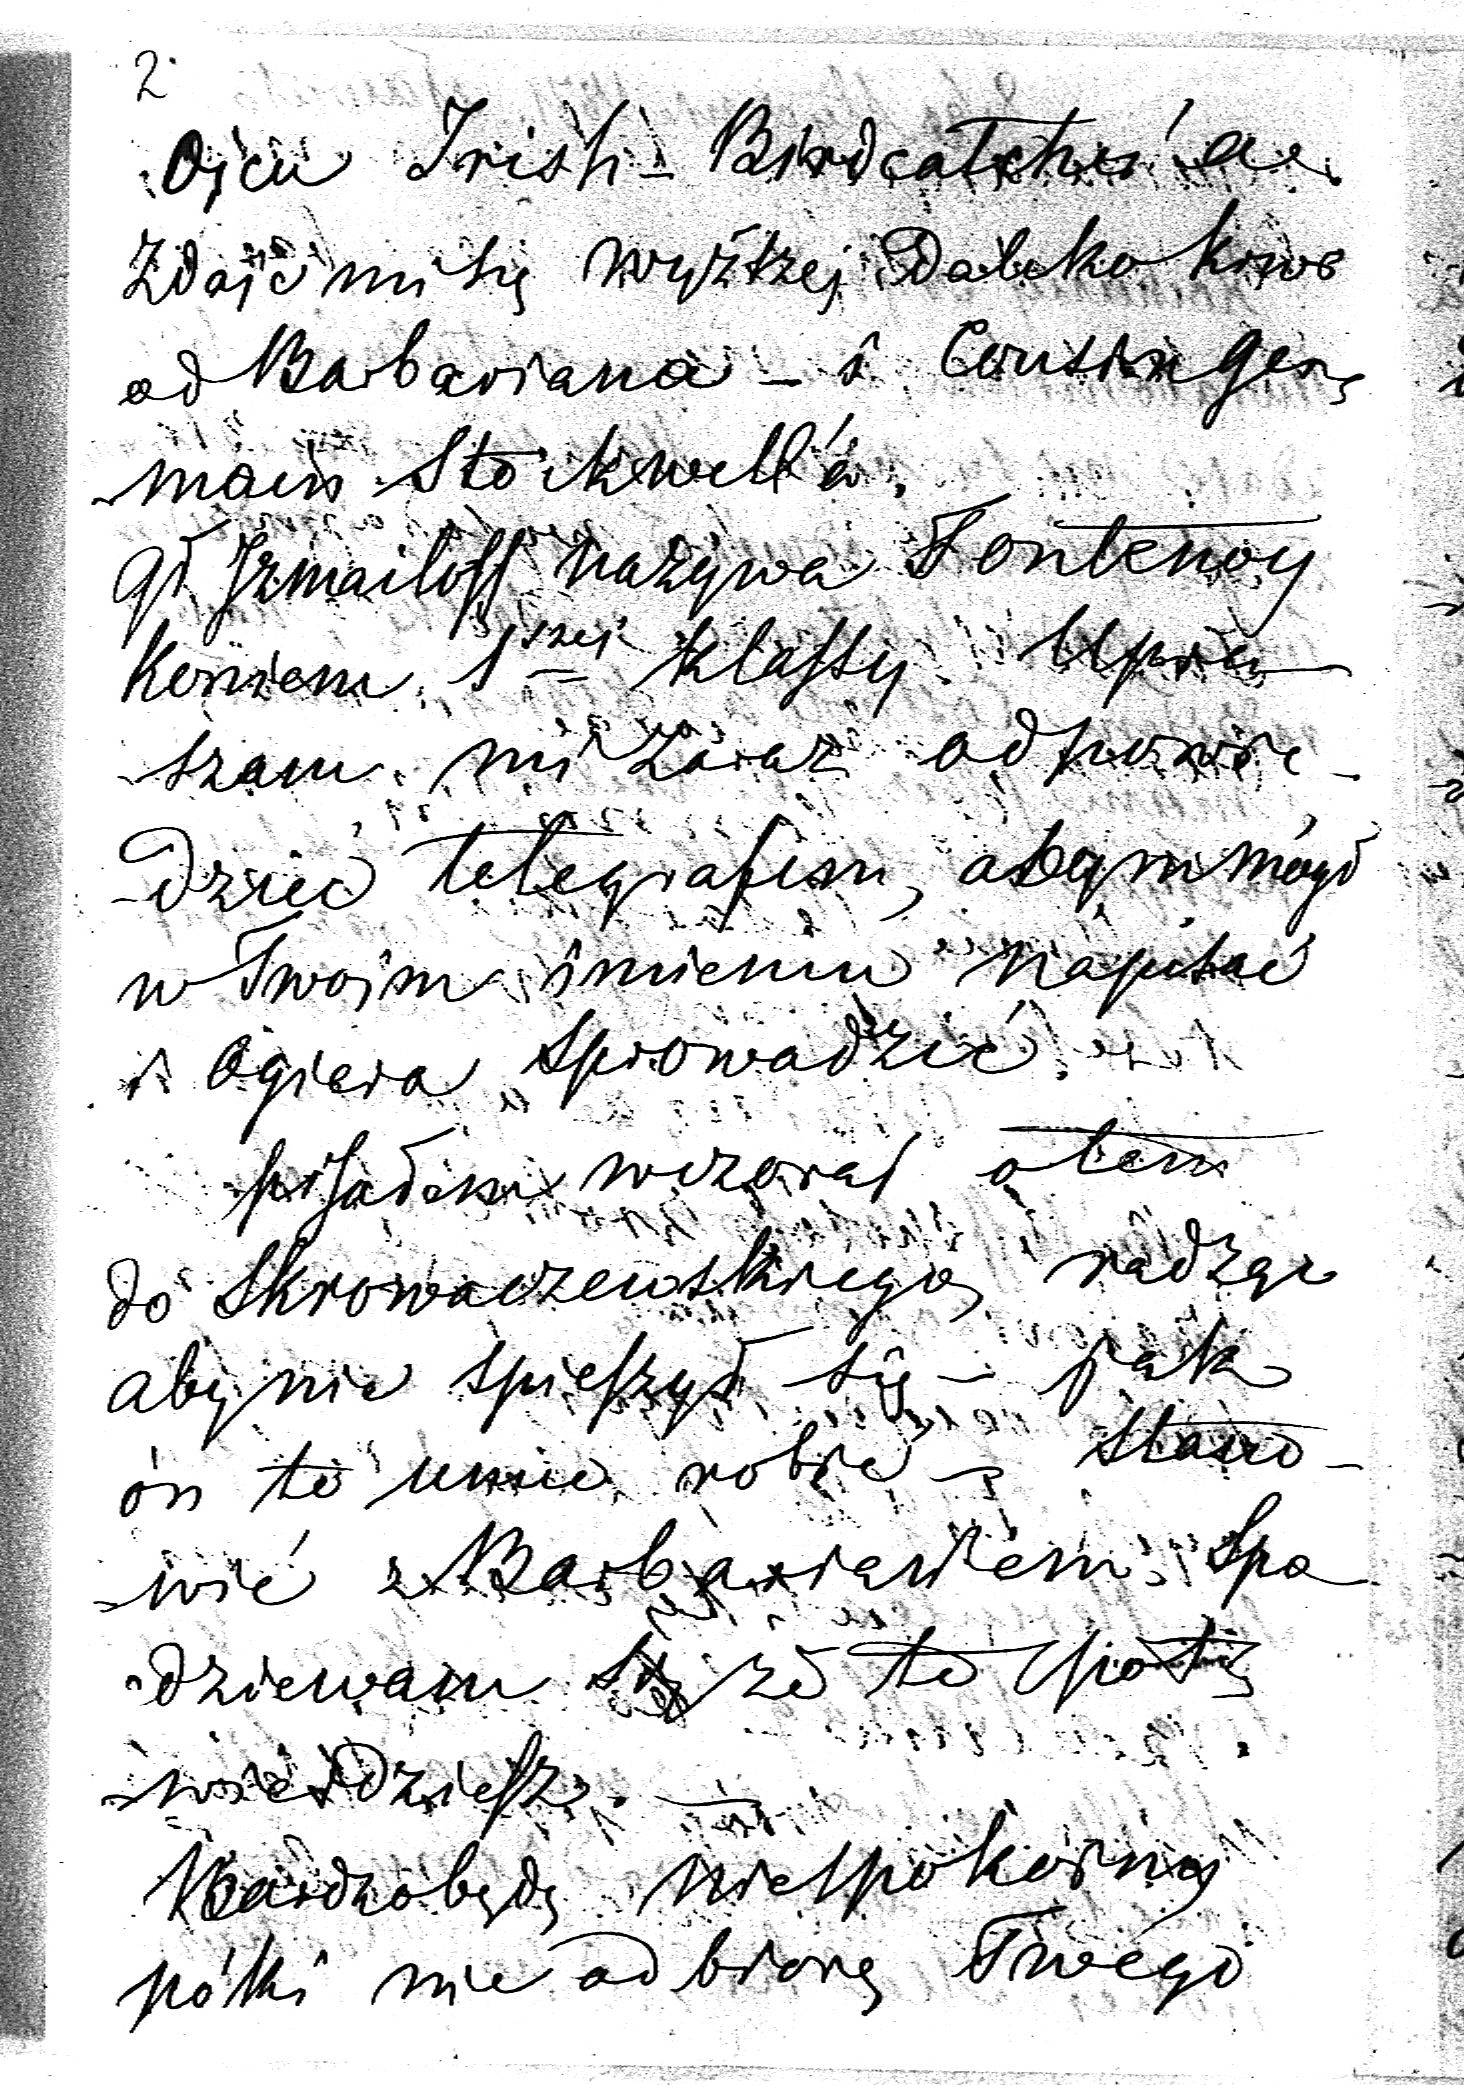 2.
Ojcu Irish-Birdcatcher'a.
Zdaje mi się wyższej daleko krwi
od Barbariana – i Cousin ger-
-main Stockwell'a.
Gł Izmailoff nazywa Fontenoy
koniem 1szej klassy. Upra-
szam mi zaraz odpowie-
-dzieć telegrafem, abym mógł
w Twojim imieniu napisać
i Ogiera sprowadzić.
pisałem wczoraj o tem
do Skrowaczewskiego, radząc
aby nie spieszył się – jak
on to umie robić – stano-
-wić z Barbarianem. Spo
-dziewam się że to pot-
-wierdzisz. –
Bardzo będę niespokojny
póki nie odbiorę Twego